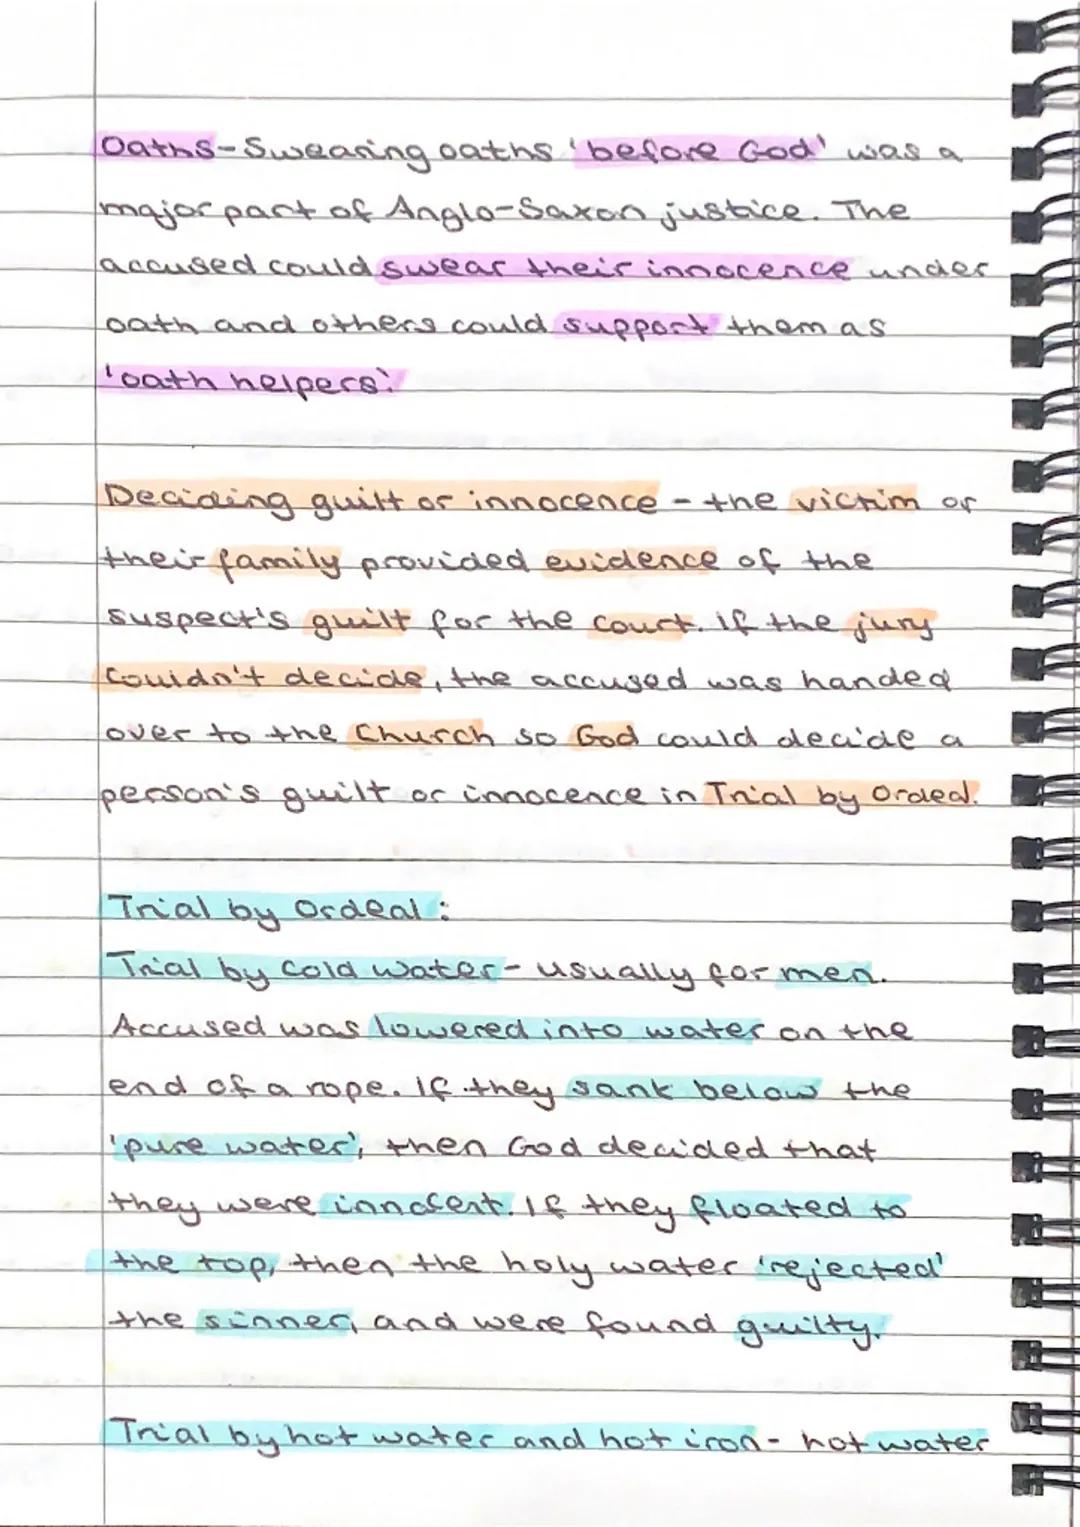 Oaths-Swearing oaths 'before God' was a
major part of Anglo-Saxon justice. The
accused could swear their innocence under
oath and others could support them as
'oath helpers'.
Deciding guilt or innocence - the victim or
their family provided evidence of the
suspect's guilt for the court. If the jury
couldn't decide, the accused was handed
over to the Church so God could decide a
person's guilt or innocence in Trial by Ordeal.
Trial by Ordeal:
Trial by cold water- usually for men.
Accused was lowered into water on the
end of a rope. If they sank below the
'pure water', then God decided that
they were innocent. If they floated to
the top, then the holy water 'rejected'
the sinner, and were found guilty.
Trial by hot water and hot iron- hot water